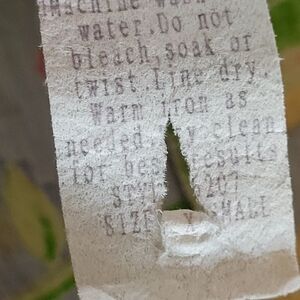 Machine wash
water.Do not
bleach,soak or
twist.Line dry.
Warm iron as
needed. clean
for best results
STY 6207
SIZE SMALL